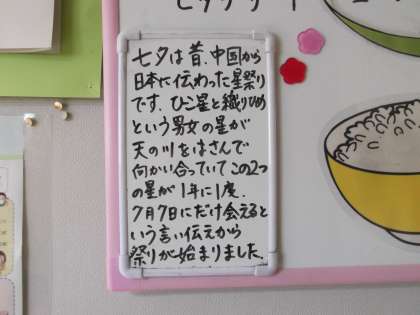 七夕は昔、中国から
日本に伝わった星祭り
です。ひこ星と織りひめ
という男女の星が
天の川をはさんで
向かい合っていてこの2つ
の星が1年に1度、
7月7日にだけ会えると
いう言い伝えから
祭りが始まりました。